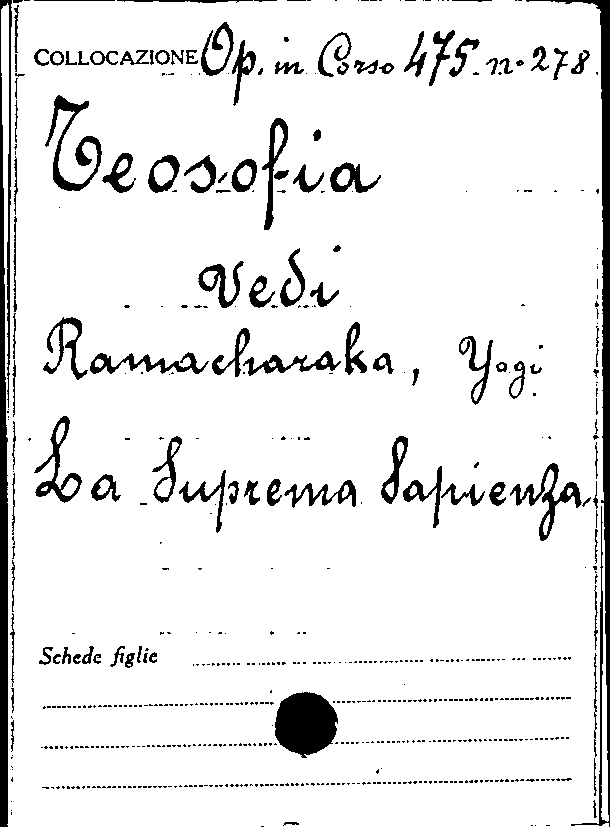 COLLOCAZIONE Op. in Corso 475 n. 278
Teosofia
Vedi
Ramacharaka, Yogi
La Suprema Sapienza.
Schede figlie